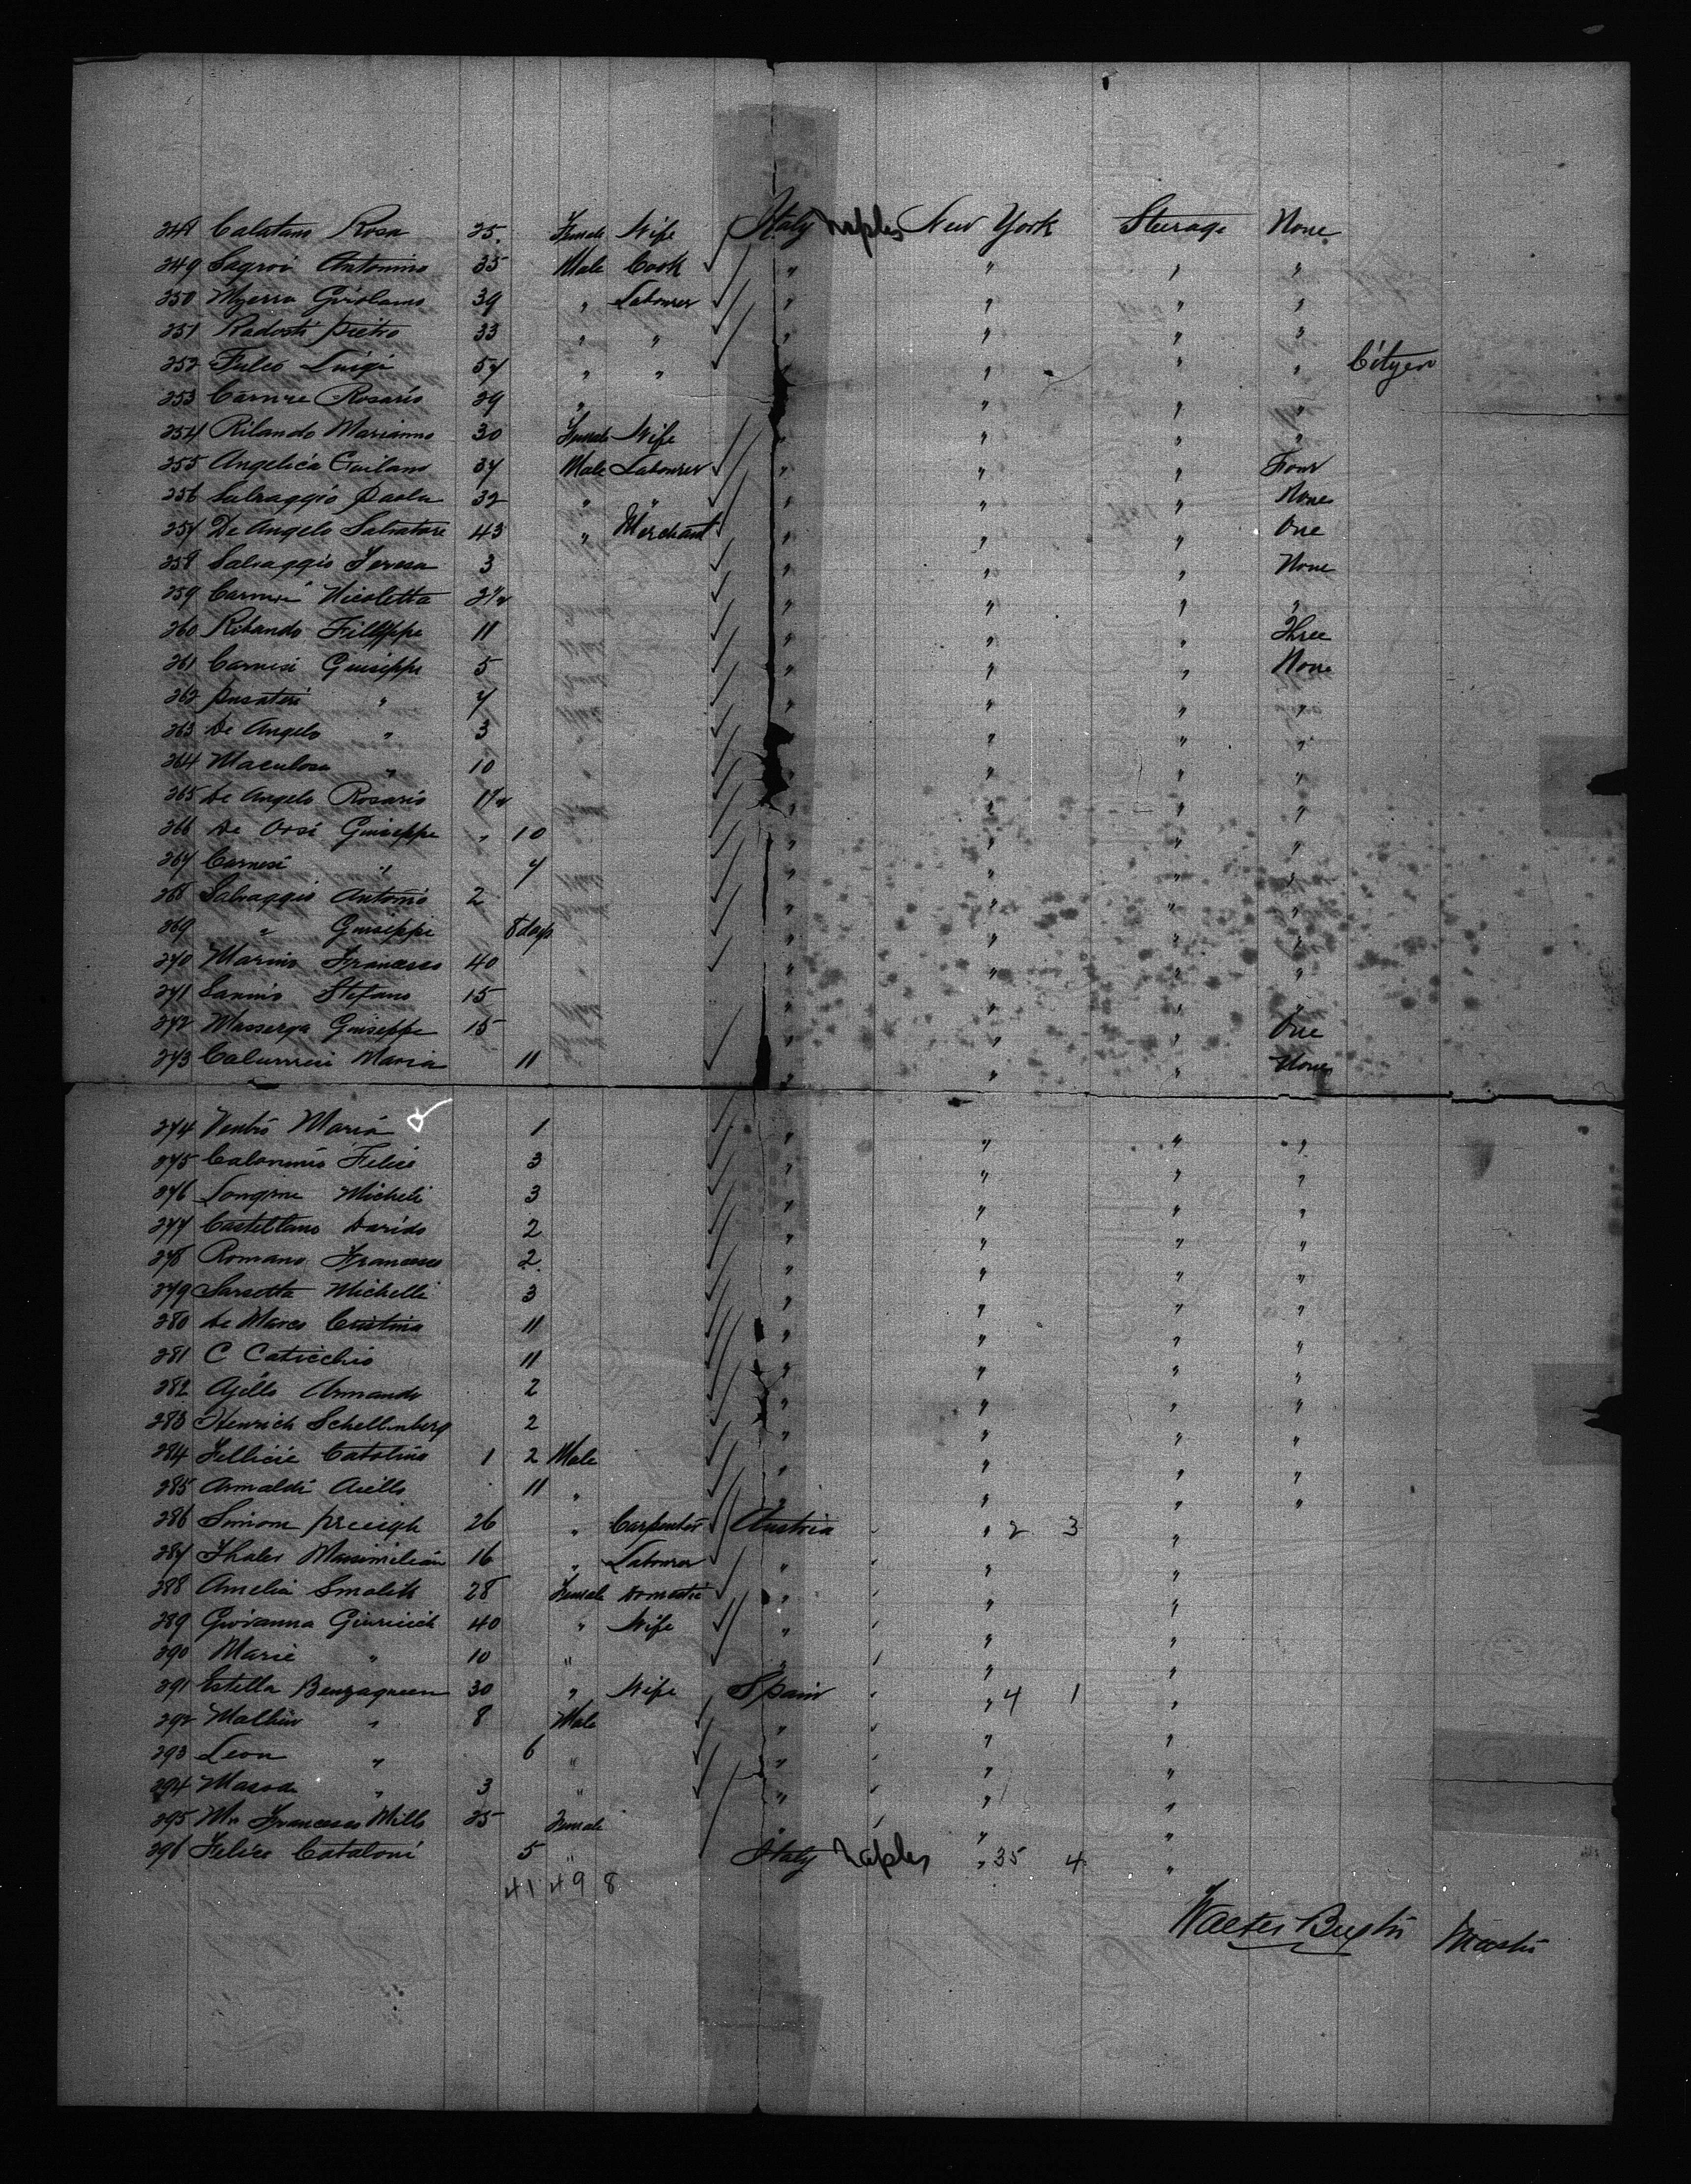 348 Calatano Rosa 25. Female Wife Italy Naples New York Sterage None
349 Sagroi Antonino 35 Male Cook " " " "
350 Myerra Girolamo 39 " Labourer " " " "
351 Radosti Pietro 33 " " " " " "
352 Fulco Luigi 57 " " " " " " Cityen
353 Rosario 29 " " " " "
354 Rilando Marianno 30 Female Wife " " " "
355 Angelica Guilano 37 Male Labourer " " " Four
356 Salvaggio Paolu 32 " " " " " None
357 De Angelo Salvatore 43 " Merchant " " " One
358 Salvaggio Teresa 3 " " " None
359 Nicoletta " " " "
360 Ribando Fillippe 11 " " " Three
361 Carnesi Giuseppe 5 " " " None
362 Pusateri " 7 " " " "
363 De Angelo " 3 " " " "
364 Maculosa " 10 " " " "
365 De Angelo Rosario " " " "
366 De Orsi Guiseppe " 10 " " " "
367 Carnesi " 7 " " " "
368 Salvaggio Antonio 2 " " " "
369 " Guiseppi 8 days " " " "
370 Marino Francesco 40 " " " "
371 Sannio Stefano 15 " " " "
372 Masserga Guiseppe 15 " " " One
373 Maria 11 " " " None
374 Ventro Maria 1 " " " "
375 Felice 3 " " " "
376 Longone Micheli 3 " " " "
377 Castellano 2 " " " "
378 Romano Francesco 2 " " " "
379 Sarsotta Michelli 3 " " " "
380 De Marco Cristina 11 " " " "
381 C Caticchio 11 " " " "
382 Ajello Armando 2 " " " "
383 Henrich Schellenberg 2 " " " "
384 Fellicie Catolino 1 2 Male " " " "
385 Armaldi Aiello 11 " " " " "
386 Simon 26 " Carpenter Austria " 2 3 "
387 Thaler Massimilian 16 " Labourer " " "
388 Amelia Smolik 28 Female Domestic " " "
389 Giovanna Giuricich 40 " Wife " " "
390 Marie " 10 " " " "
391 Estella Benzaqueen 30 " Wife Spain " 4 1 "
392 " 8 Male " " "
393 Leon " 6 " " " "
394 " 3 " " " "
395 Francesco Mills 25 Female " " "
396 Felice Cataloni 5 " Italy Naples " 35 4 "
41 49 8
Walter Master